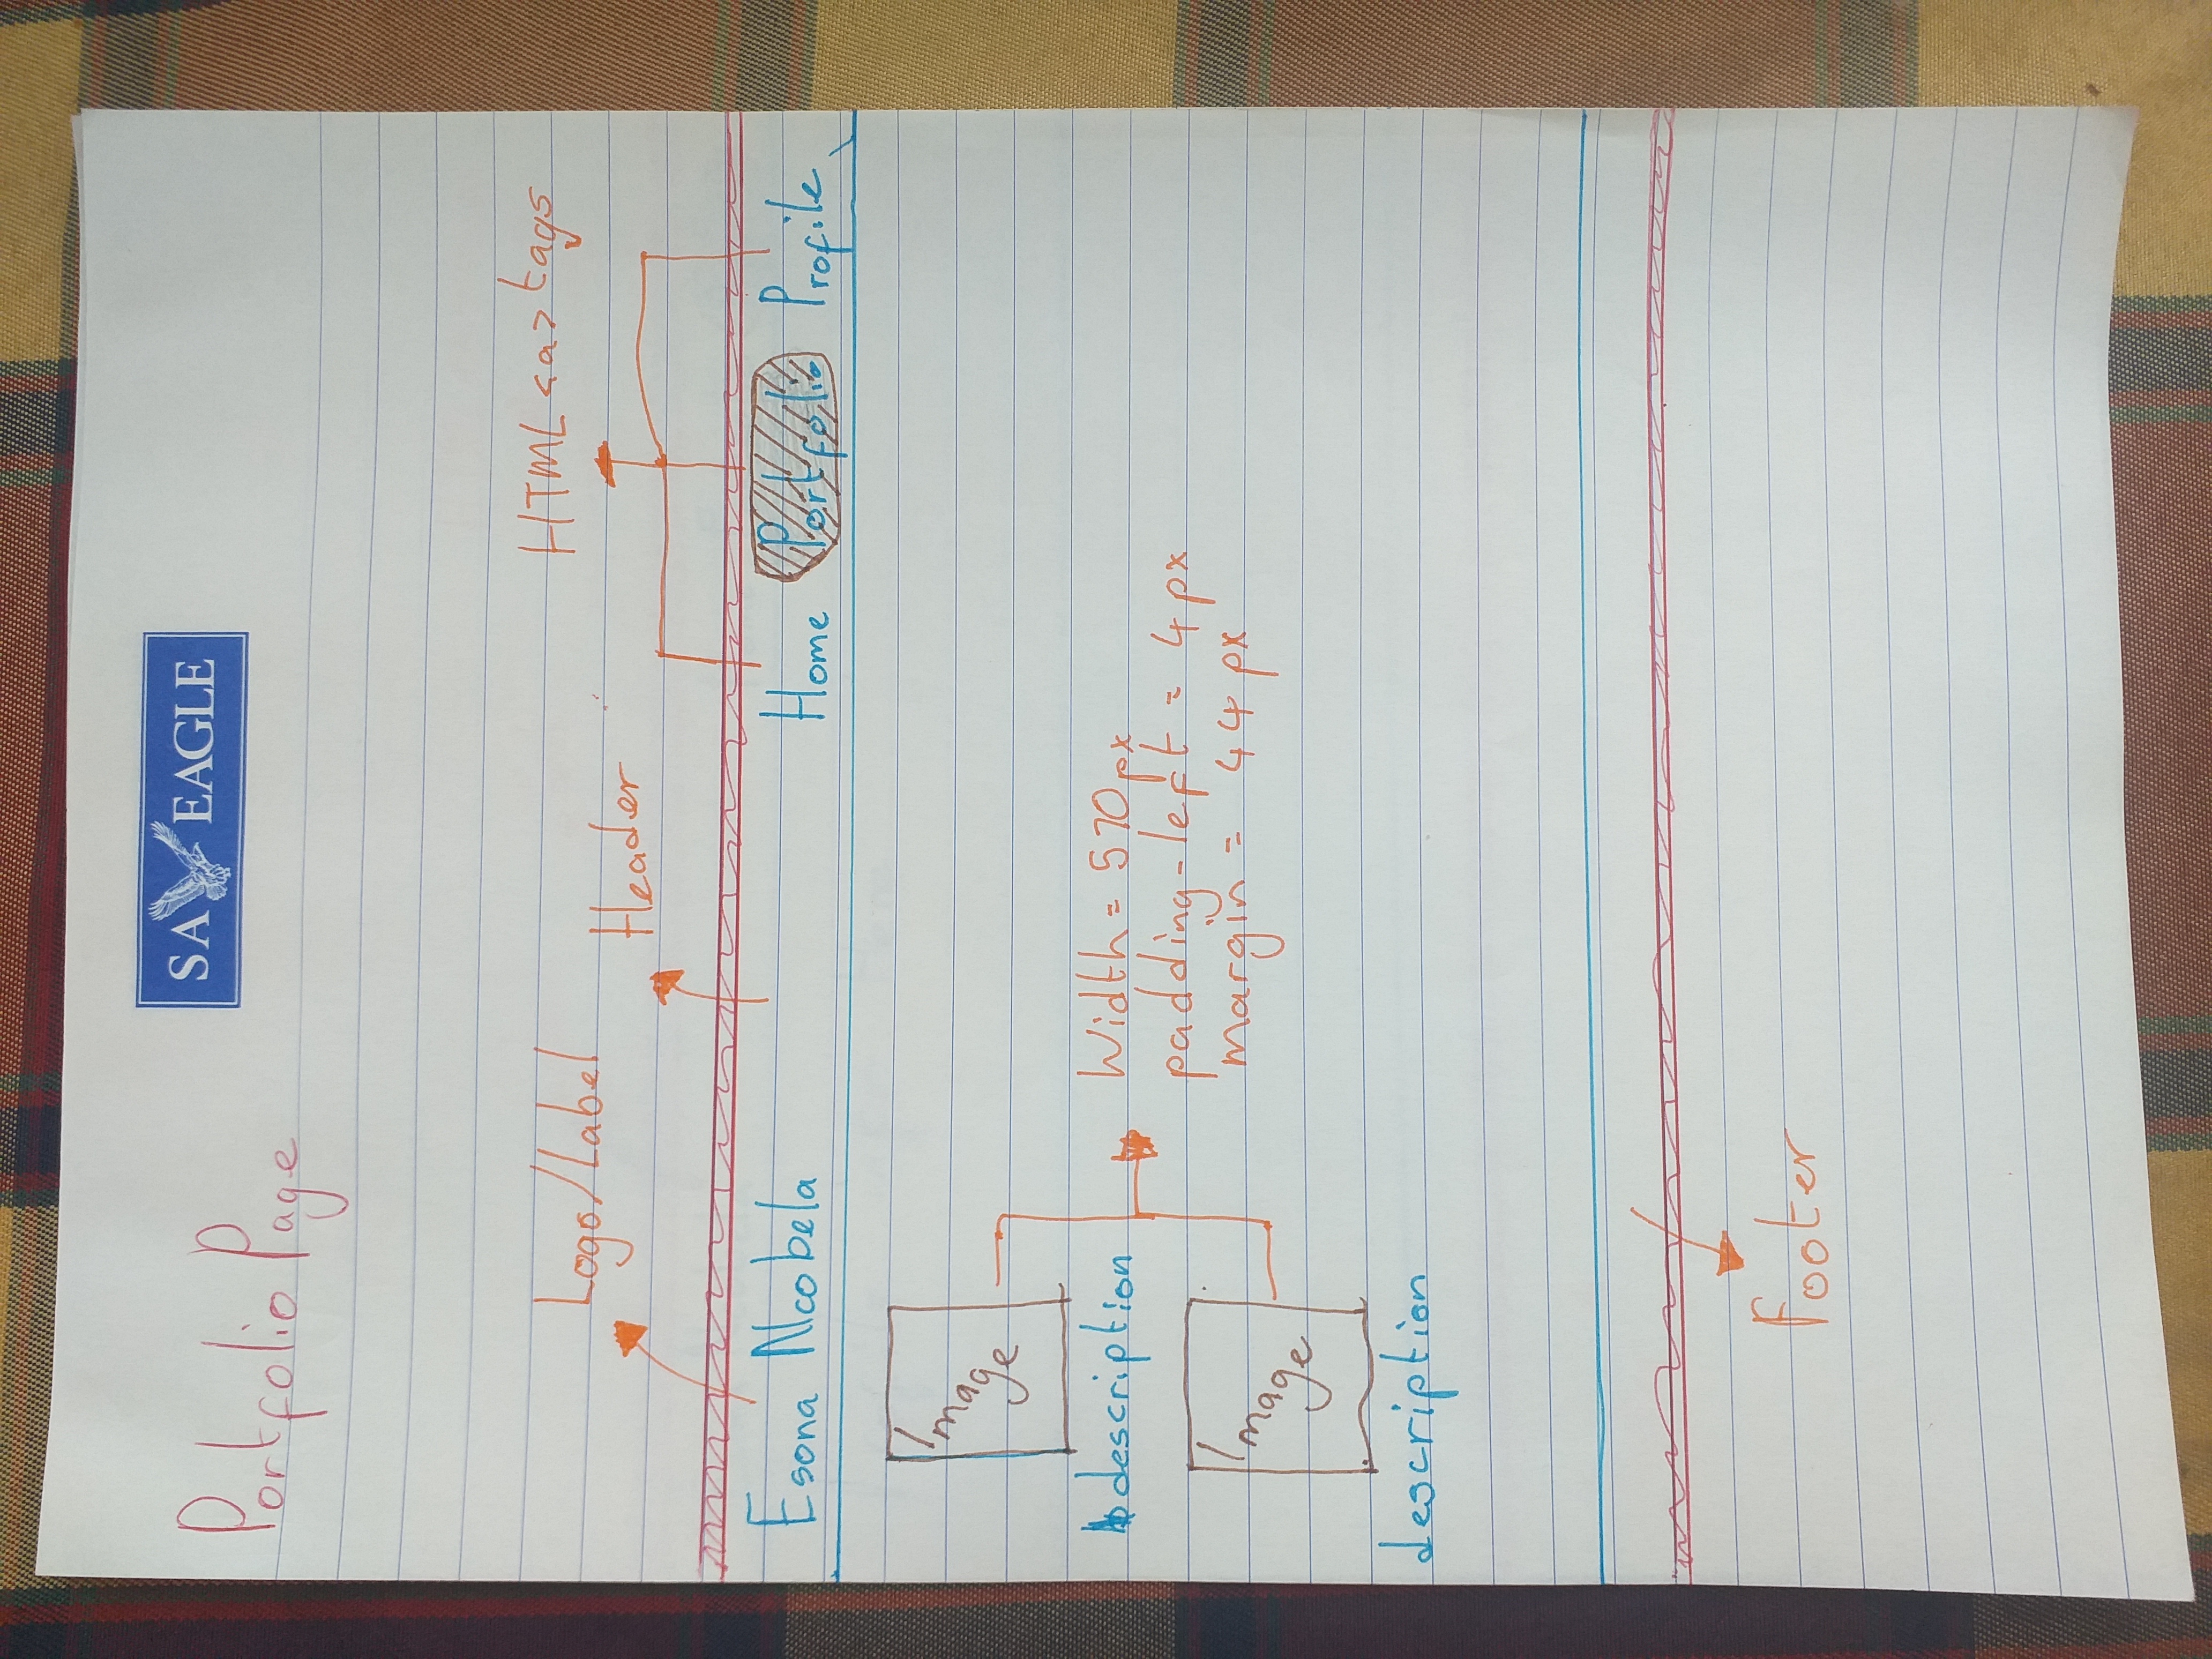 SA EAGLE
Portfolio Page
HTML <a> tags
Logo/Label
Header
Esona Ncobela Home Portfolio Profile
Image
description
Width = 570px
padding-left = 4px
margin = 44px
Image
description
Footer